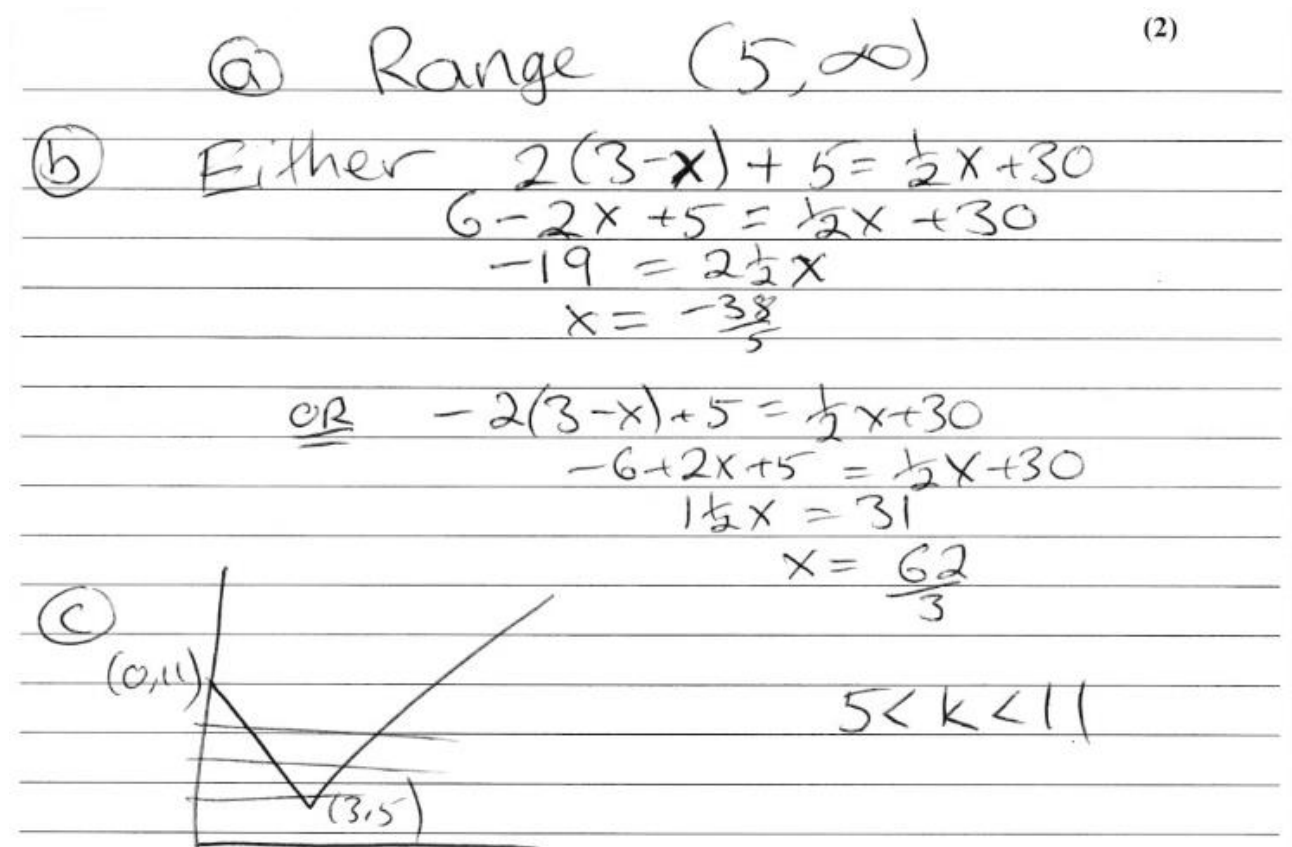 (2)
(a) Range (5, ∞)
(b) Either 2(3-x) + 5 = ½x + 30
6 - 2x + 5 = ½x + 30
-19 = 2½x
x = -38/5
OR -2(3-x) + 5 = ½x + 30
-6 + 2x + 5 = ½x + 30
1½x = 31
x = 62/3
(c)
(0,11)
5 < k < 11
(3,5)